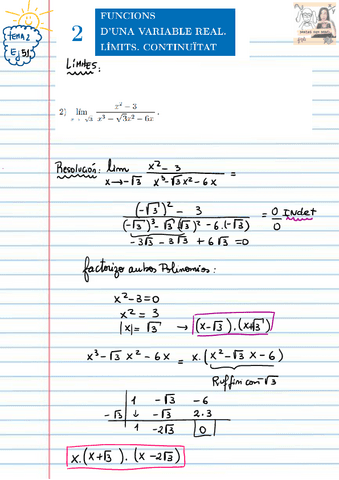 TEMA 2
Ej 51
2
FUNCIONS
D'UNA VARIABLE REAL.
LÍMITS. CONTINUÏTAT
LÍMITES:
2) lím x→-√3 (x² − 3)/(x³ − √3x² − 6x) .
Resolución: lim x→-√3 (x² − 3)/(x³ − √3 x² − 6x) =
((-√3)² − 3)/((-√3)³ − √3 (-√3)² − 6.(-√3)) = 0/0 Indet
-3√3 − 3√3 + 6√3 = 0
factorizo ambos Polinomios:
x² − 3 = 0
x² = 3
|x| = √3 → (x−√3).(x+√3)
x³ − √3 x² − 6x = x.(x² − √3 x − 6)
Ruffini con -√3
1 -√3 -6
-√3 ↓ -√3 2.3
1 -2√3 0
x.(x+√3).(x−2√3)